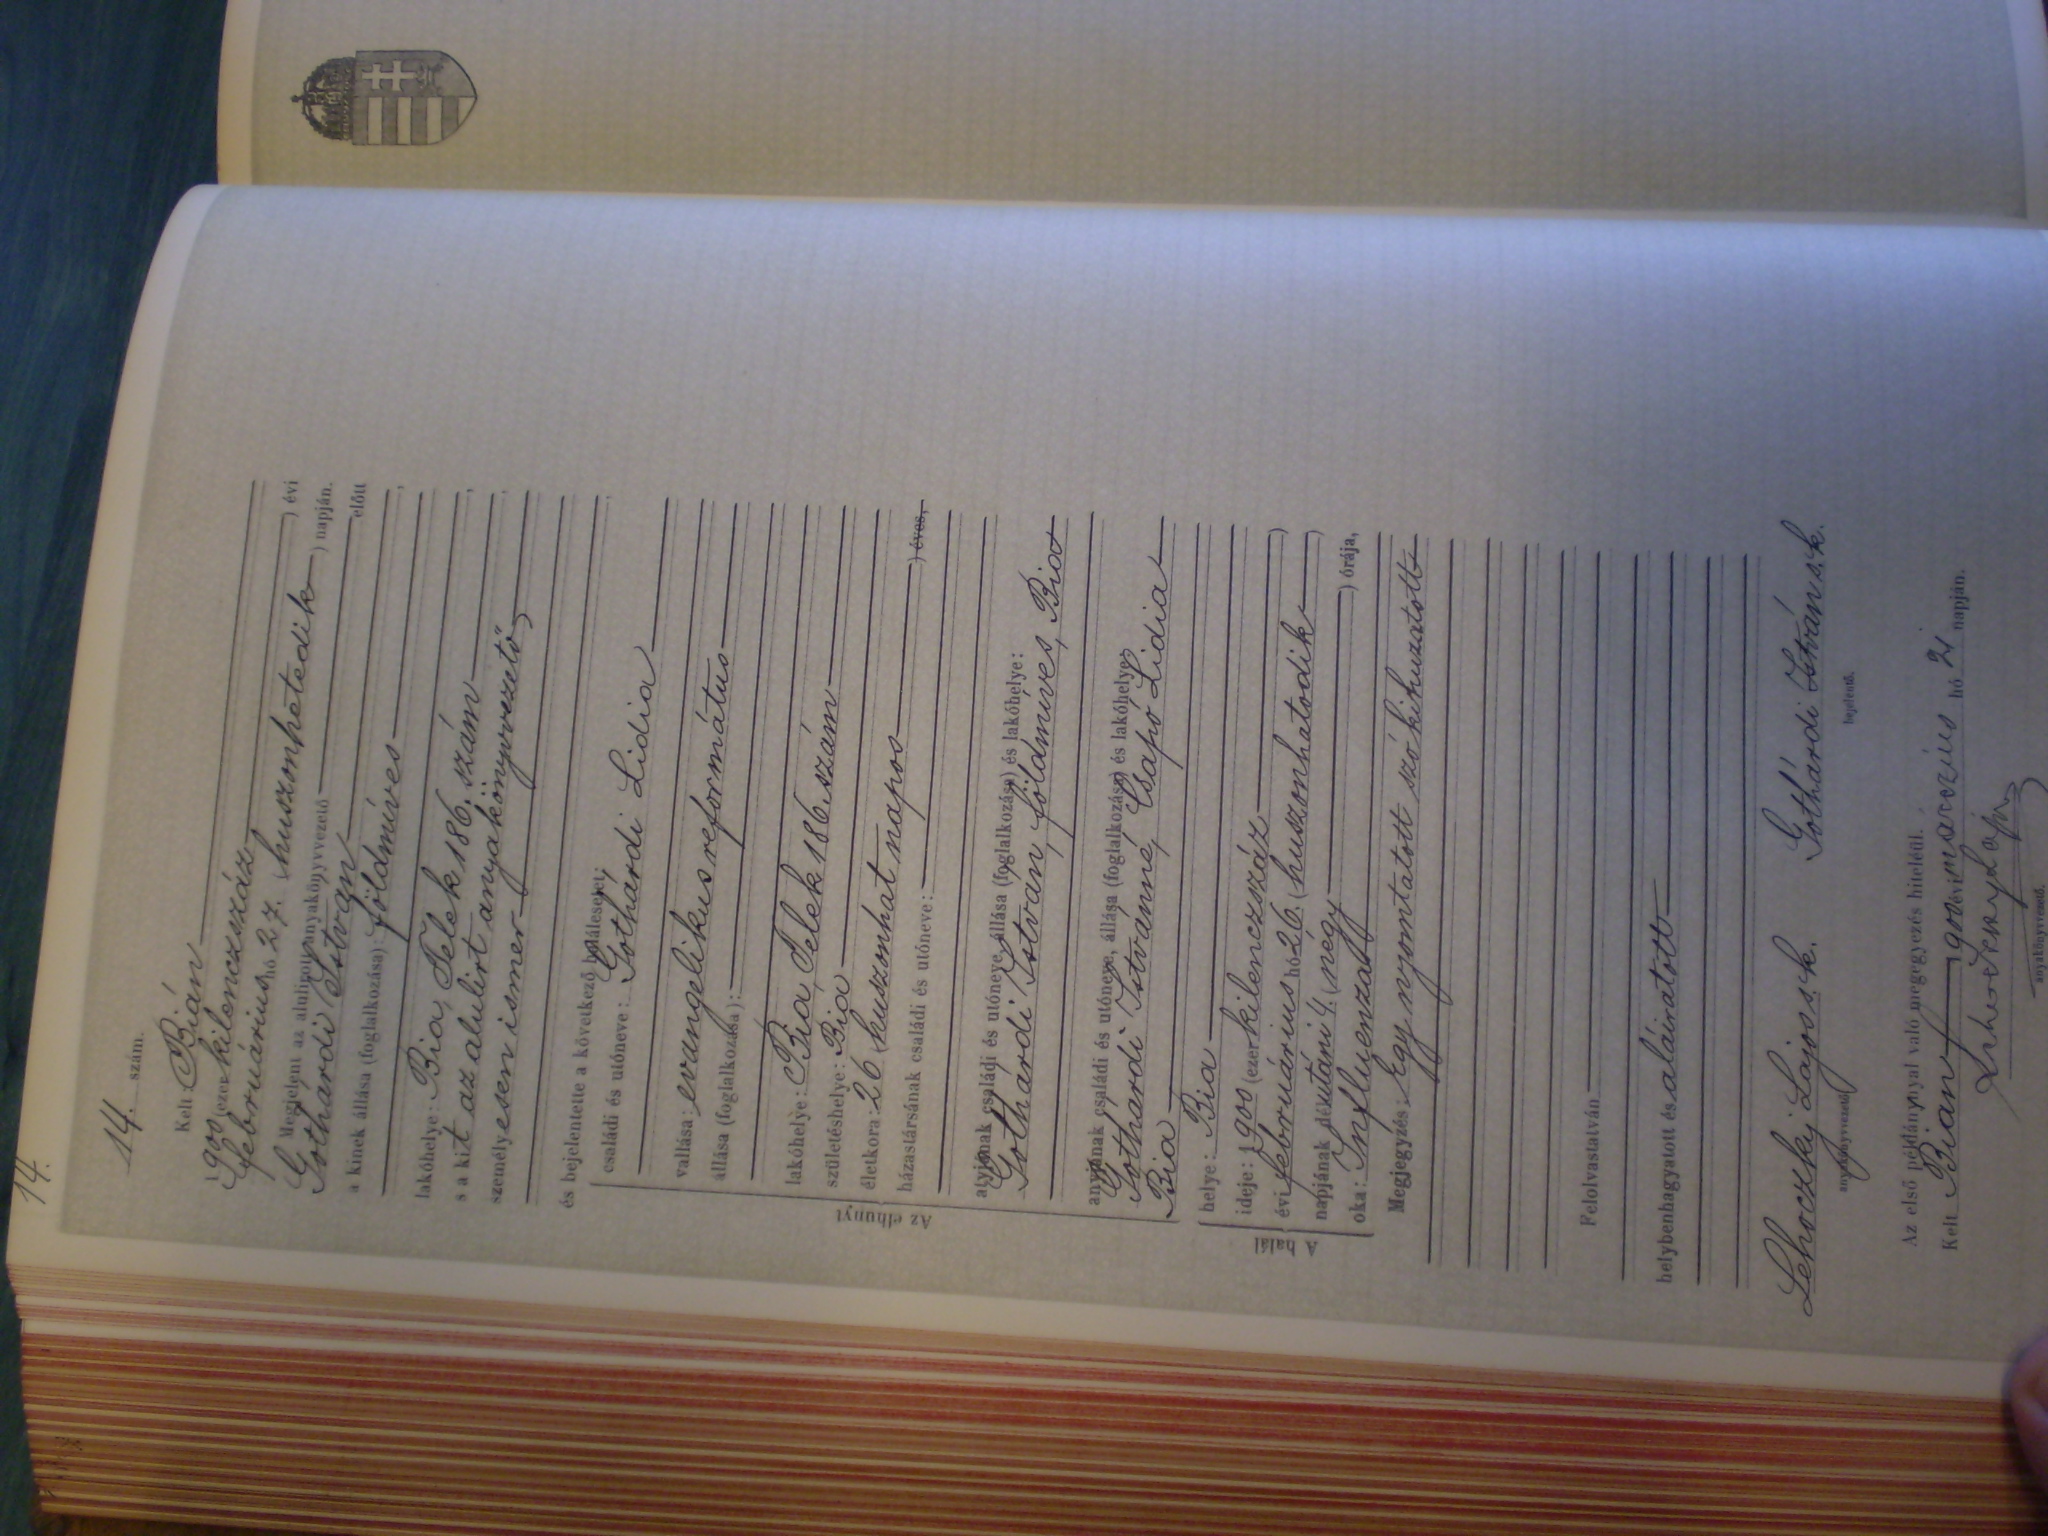 14.
14. szám.
Kelt: Bián
1900 (ezer kilenczszáz ) évi
február​ius hó 27. (huszonhetedik ) napján.
Megjelent az alulirott anyakönyvvezető előtt
Gothardi István
a kinek állása (foglalkozása): földmíves,
lakóhelye: Bia, Telek 186. szám,
s a kit az alulirt anyakönyvvezető
személyesen ismer,
és bejelentette a következő halálesetet:
családi és utóneve: Gothardi Lidia
vallása: evangelikus református
állása (foglalkozása):
lakóhelye: Bia Telek 186. szám
születéshelye: Bia
életkora: 26 (huszonhat napos ) éves,
házastársának családi és utóneve:
atyjának családi és utóneve, állása (foglalkozása) és lakóhelye:
Gothardi István földmíves, Bia
anyjának családi és utóneve, állása (foglalkozása) és lakóhelye:
Gothardi Istvánné, Csapó Lidia
Bia
Az elhunyt
helye: Bia
ideje: 1900 (ezer kilenczszáz )
évi februárius hó 26. (huszonhatodik )
napjának délutáni 4. (négy ) órája,
oka: Influenza
A halál
Megjegyzés: Egy nyomtatott szó kihuzatott
Felolvastatván
helybenhagyatott és aláiratott
Lehoczky Lajos s. k. Gothardi István s. k.
anyakönyvvezető. bejelentő.
Az első példánynyal való megegyezés hiteléül.
Kelt Bian 1900 évi marczius hó 2 napján.
Lehoczky Lajos
anyakönyvvezető.